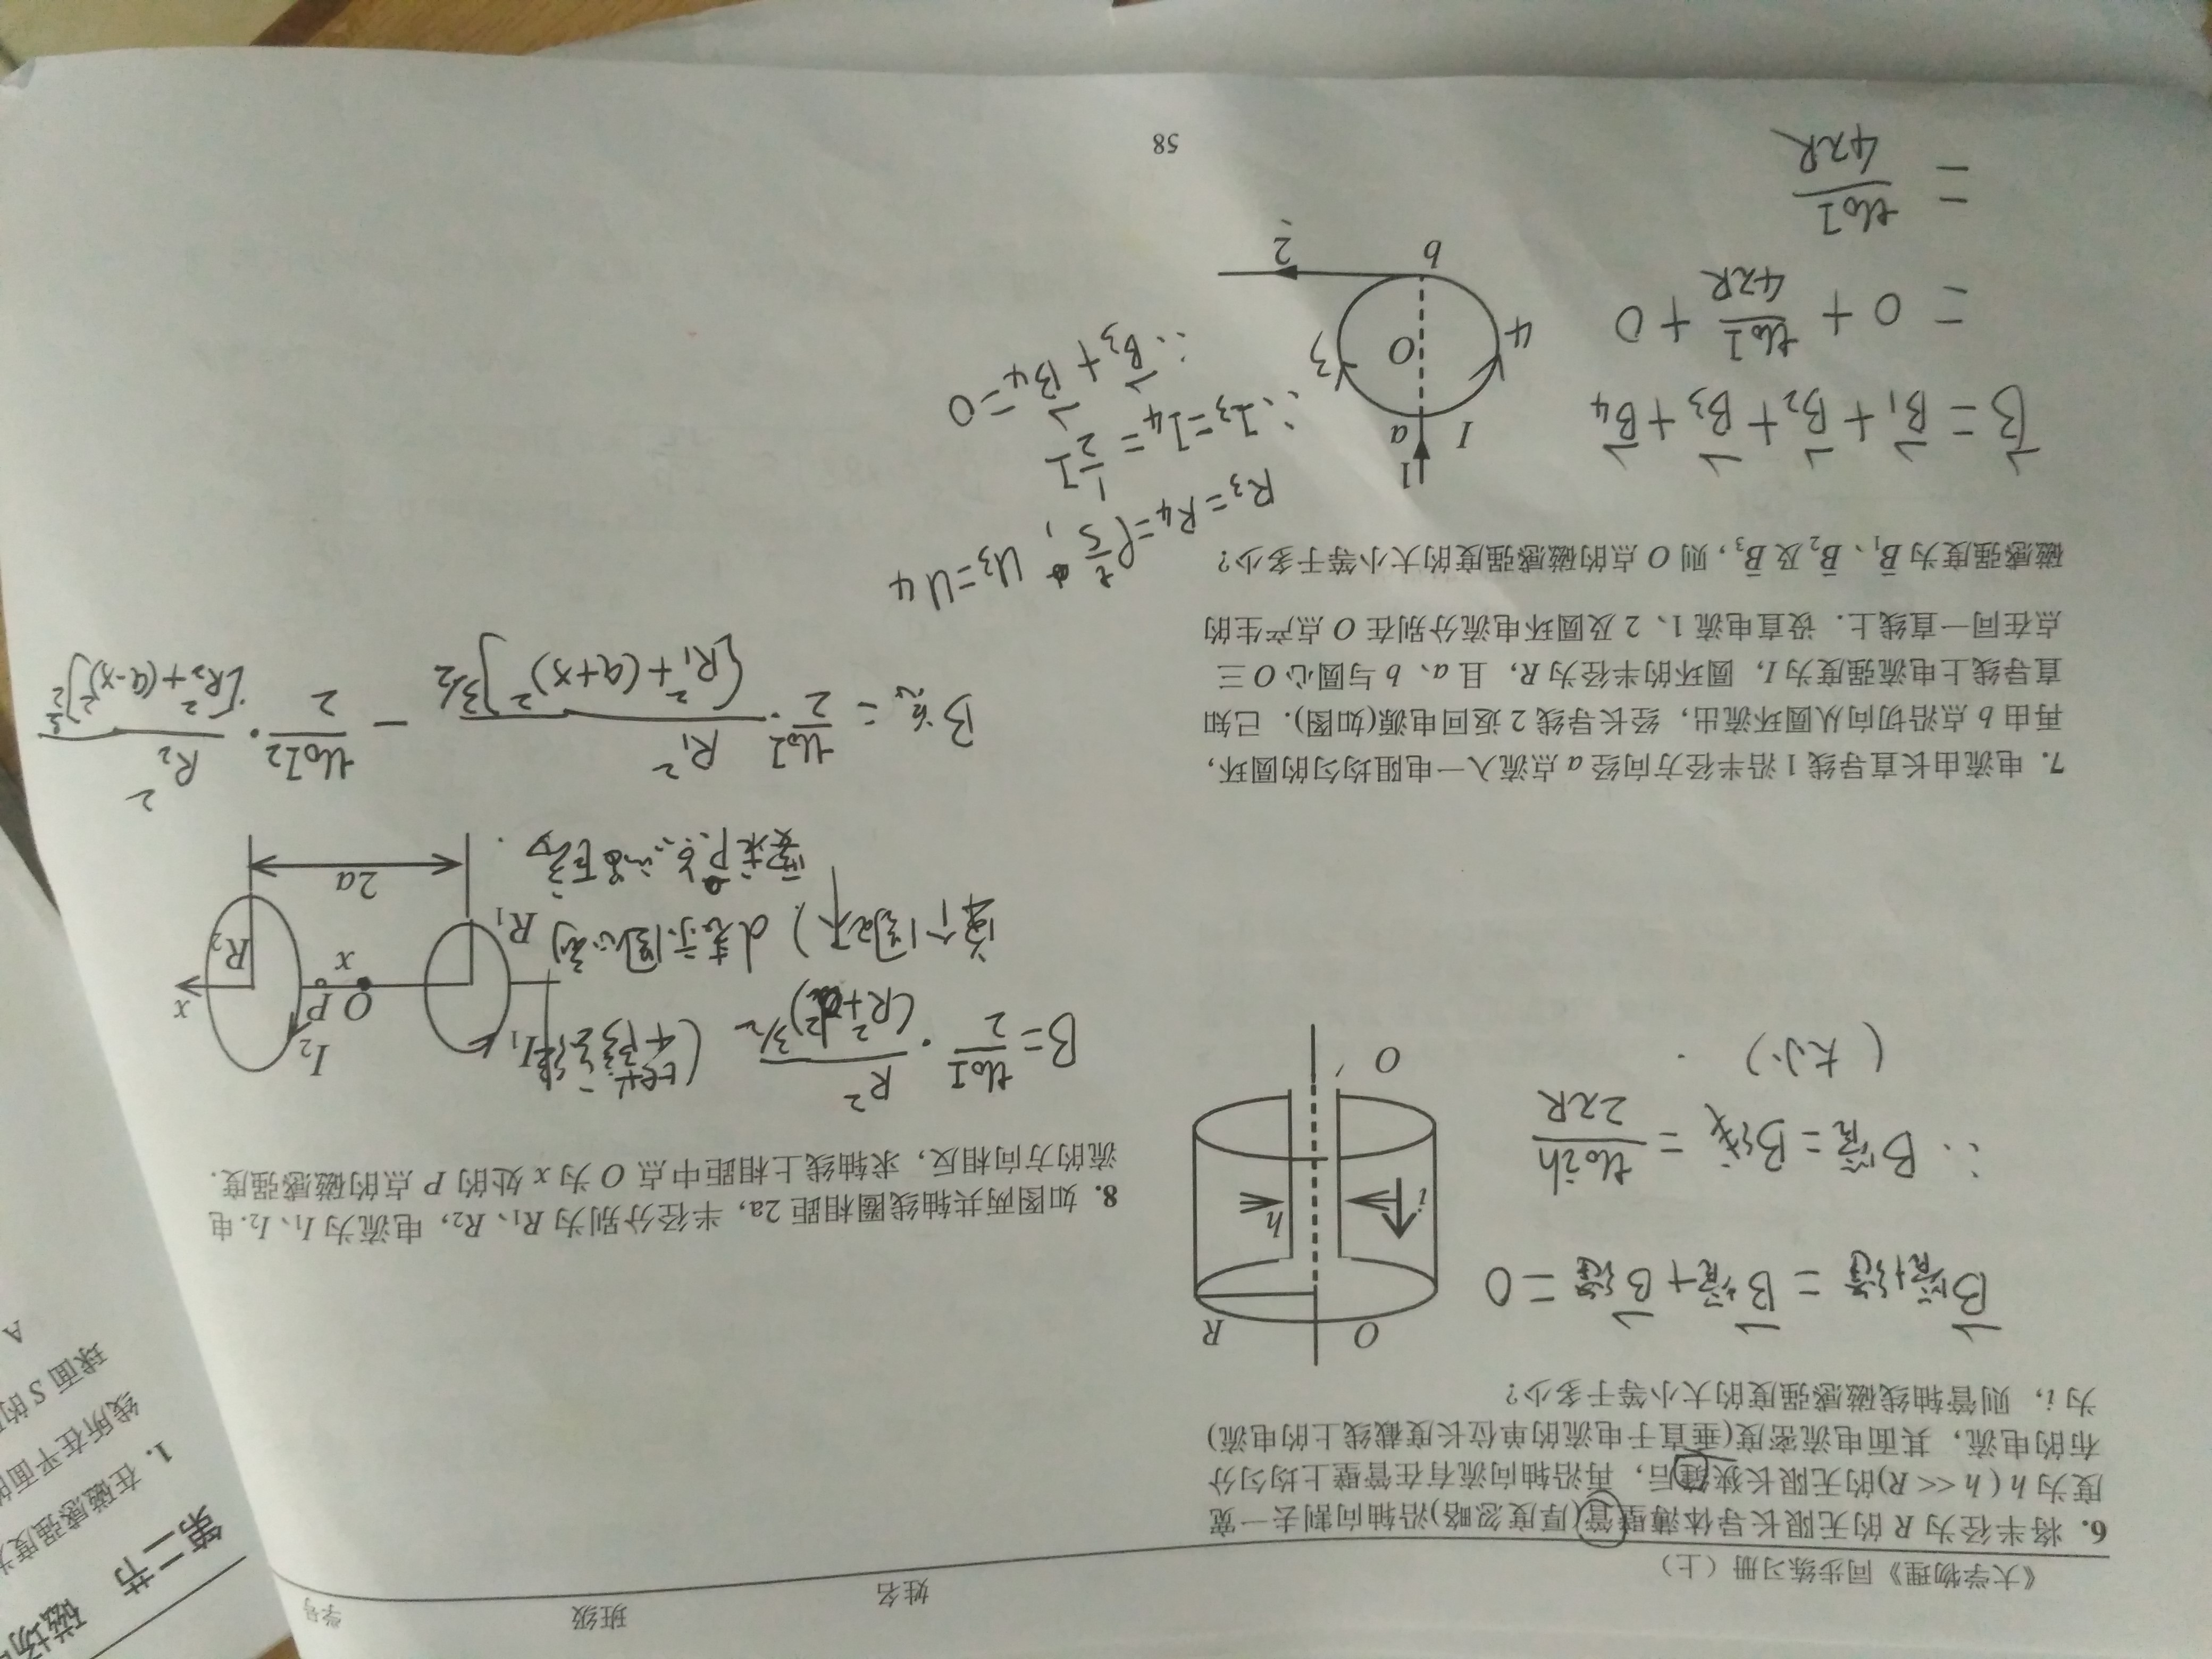 《大学物理》同步练习册（上）
姓名
班级
学号
6. 将半径为 R 的无限长导体薄壁管(厚度忽略)沿轴向割去一宽
度为 h ( h << R)的无限长狭缝后，再沿轴向流有在管壁上均匀分
布的电流，其面电流密度(垂直于电流的单位长度截线上的电流)
为 i，则管轴线磁感强度的大小等于多少?
B管+缝 = B管 + B缝 = 0
∴ B管 = B缝 = μ₀ih / 2πR
(大小)
O
R
i
h
O′
7. 电流由长直导线 1 沿半径方向经 a 点流入一电阻均匀的圆环，
再由 b 点沿切向从圆环流出，经长导线 2 返回电源(如图)．已知
直导线上电流强度为 I，圆环的半径为 R，且 a、b 与圆心 O 三
点在同一直线上．设直电流 1、2 及圆环电流分别在 O 点产生的
磁感强度为 B₁、B₂ 及 B₃，则 O 点的磁感强度的大小等于多少?
B = B₁ + B₂ + B₃ + B₄
= 0 + μ₀I / 4πR + 0
= μ₀I / 4πR
1
a
I
4
O
3
b
2
R₃=R₄=ρ l/S , U₃=U₄
∴ I₃=I₄= 1/2 I
∴ B₃ + B₄ =0
8. 如图两共轴线圈相距 2a，半径分别为 R₁、R₂，电流为 I₁、I₂. 电
流的方向相反，求轴线上相距中点 O 为 x 处的 P 点的磁感强度.
B= μ₀I/2 · R²/(R²+d²)^3/2
d表示圆心到
要求P点的距离.
I₁
R₁
O
x
P
I₂
R₂
x
2a
B总 = μ₀I/2 · R₁²/[R₁²+(a+x)²]^3/2 − μ₀I₂/2 · R₂²/[R₂²+(a-x)²]^3/2
58
第二节 磁场
1. 在磁感强度为
线所在平面的
球面 S 的
A